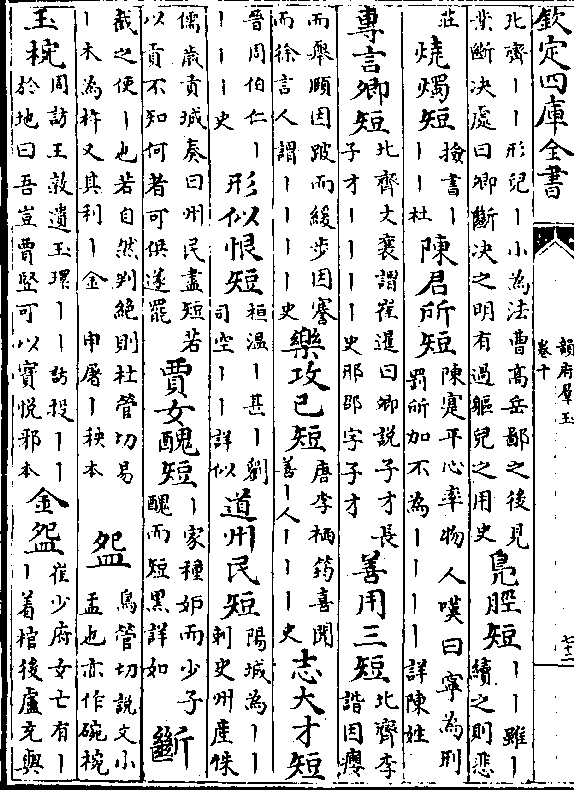 欽定四庫全書
韻府羣玉
卷十
七十二
北齊丨丨形皃丨小為法曹高岳鄙之後見
業斷決處曰卿斷决之明有過軀皃之用史
鳧脛短
丨丨雖丨
續之則悲
莊
燒燭短
撿書丨
丨丨杜
陳君所短
陳寔平心率物人嘆曰寧為刑
罰所加不為丨丨丨丨詳陳姓
專言卿短
北齊文襄謂崔暹曰卿說子才長
子才丨丨丨丨史邢邵字子才
善用三短
北齊李
諧因癭
而舉頤因跛而緩步因謇
而徐言人謂丨丨丨丨史
樂攻已短
唐李栖筠喜聞
善丨人丨丨丨史
志大才短
晉周伯仁丨
丨丨丨史
形似恨短
桓温丨甚丨劉
司空丨丨詳似
道州民短
陽城為丨丨
刺史州産侏
儒歲貢城奏曰州民盡短若
以貢不知何者可供遂罷
賈女醜短
丨家種妒而少子
醜而短黑詳如
斷
截之使丨也若自然判絕則杜管切易
丨木為杵又其利丨金 申屠丨秧本
盌
烏管切說文小
盂也亦作碗椀
玉椀
周訪王敦遺玉環丨丨訪投丨丨
於地曰吾豈賈竪可以寳悅邪本
金盌
崔少府女亡有丨
丨着棺後盧充與